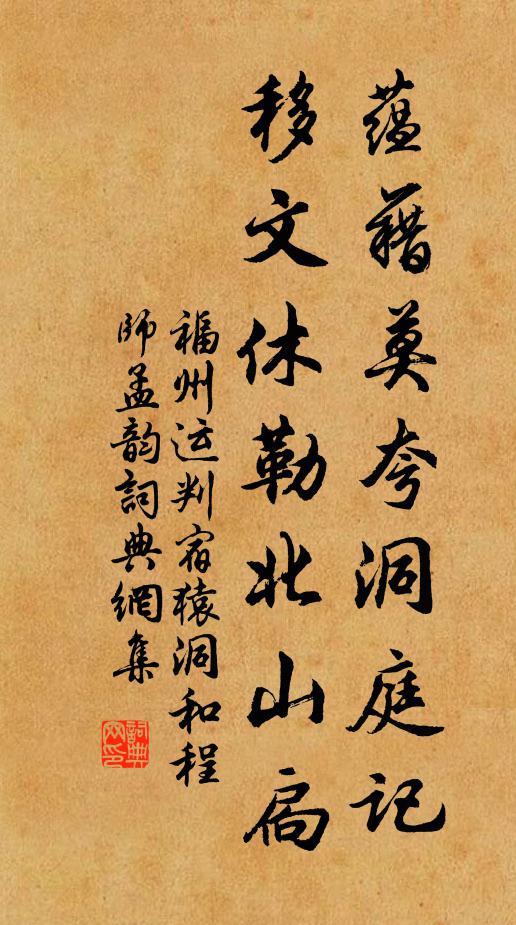 蕴藉莫夸洞庭记
移文休勒北山扃
福州运判宿猿洞和程
师孟韵詞典網集
詞典网印